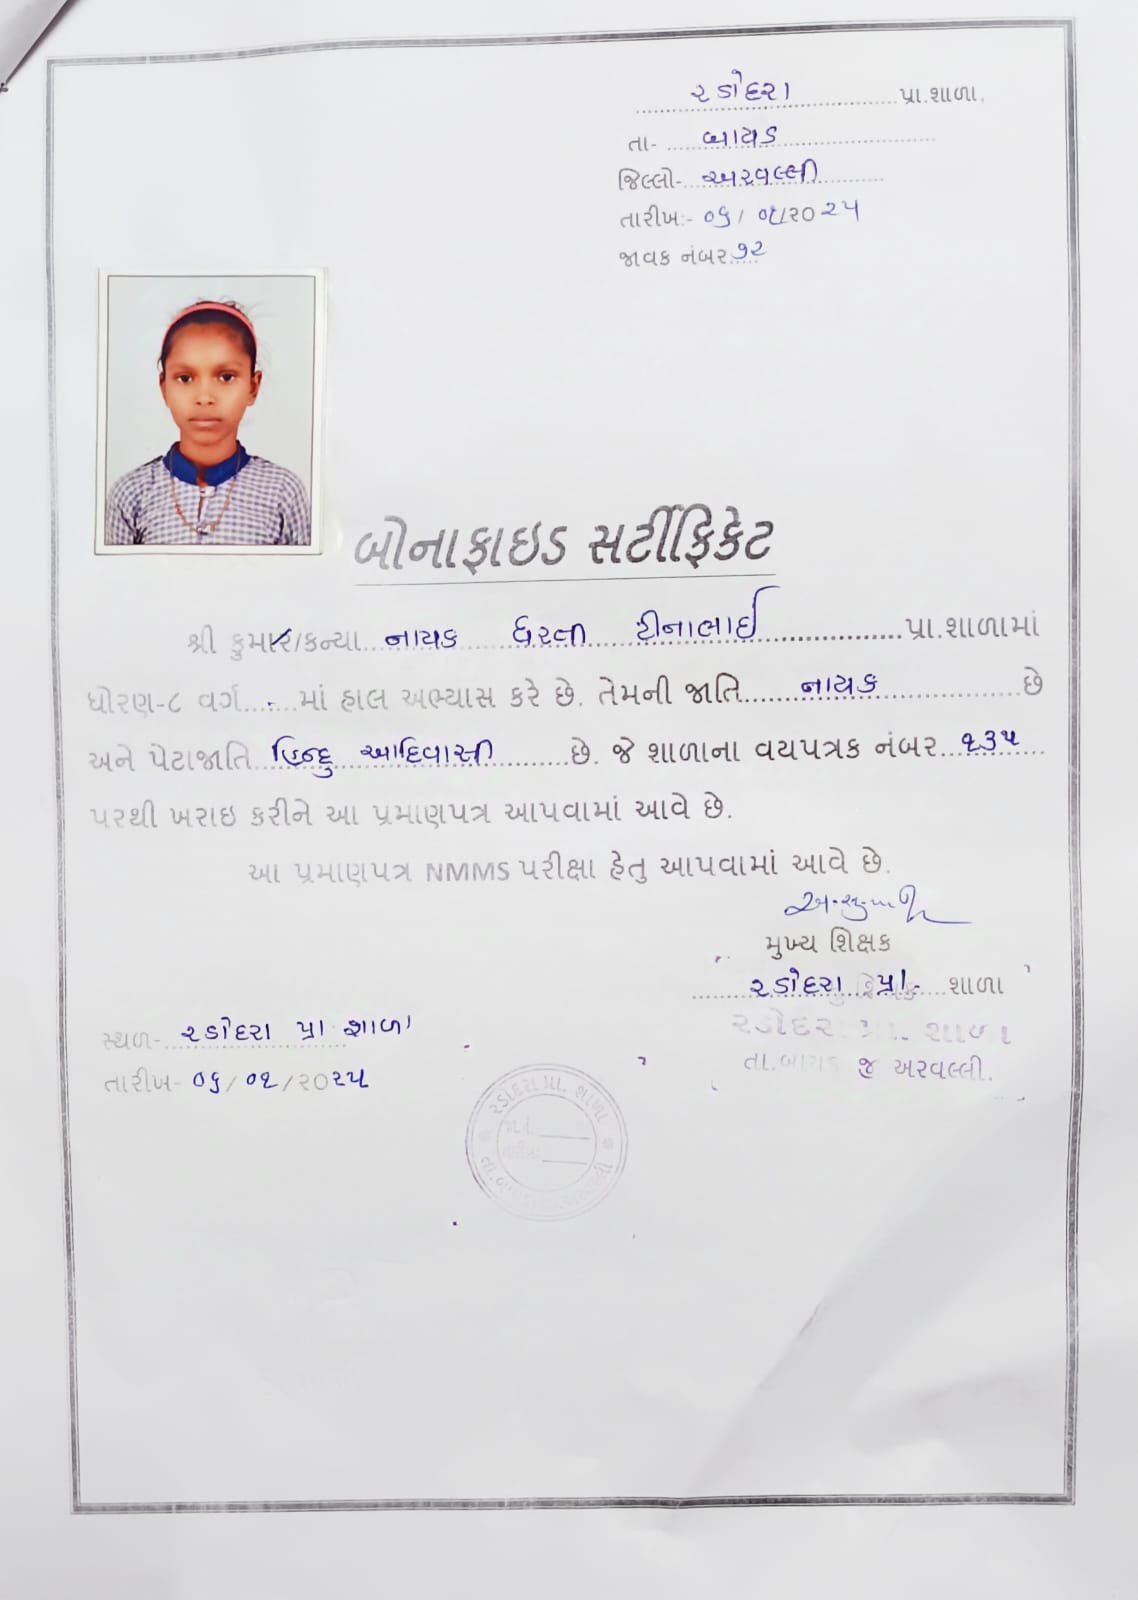 રડોદરા પ્રા.શાળા,
તા- બાયડ
જિલ્લો- અરવલ્લી
તારીખ:- ૦૬/ ૦૧/૨૦૨૫
જાવક નંબર ૭૨
બોનાફાઇડ સર્ટીફિકેટ
શ્રી કુમાર/કન્યા નાયક ધરતી ટીનાભાઈ પ્રા.શાળામાં
ધોરણ-૮ વર્ગ - માં હાલ અભ્યાસ કરે છે. તેમની જાતિ નાયક છે
અને પેટાજાતિ હિન્દુ આદિવાસી છે. જે શાળાના વયપત્રક નંબર ૧૩૫
પરથી ખરાઇ કરીને આ પ્રમાણપત્ર આપવામાં આવે છે.
આ પ્રમાણપત્ર NMMS પરીક્ષા હેતુ આપવામાં આવે છે.
મુખ્ય શિક્ષક
રડોદરા પ્રા. શાળા
રડોદરા પ્રા. શાળા
તા.બાયડ જી અરવલ્લી.
સ્થળ- રડોદરા પ્રા શાળા
તારીખ- ૦૬/૦૧/૨૦૨૫
રડોદરા પ્રા. શાળા